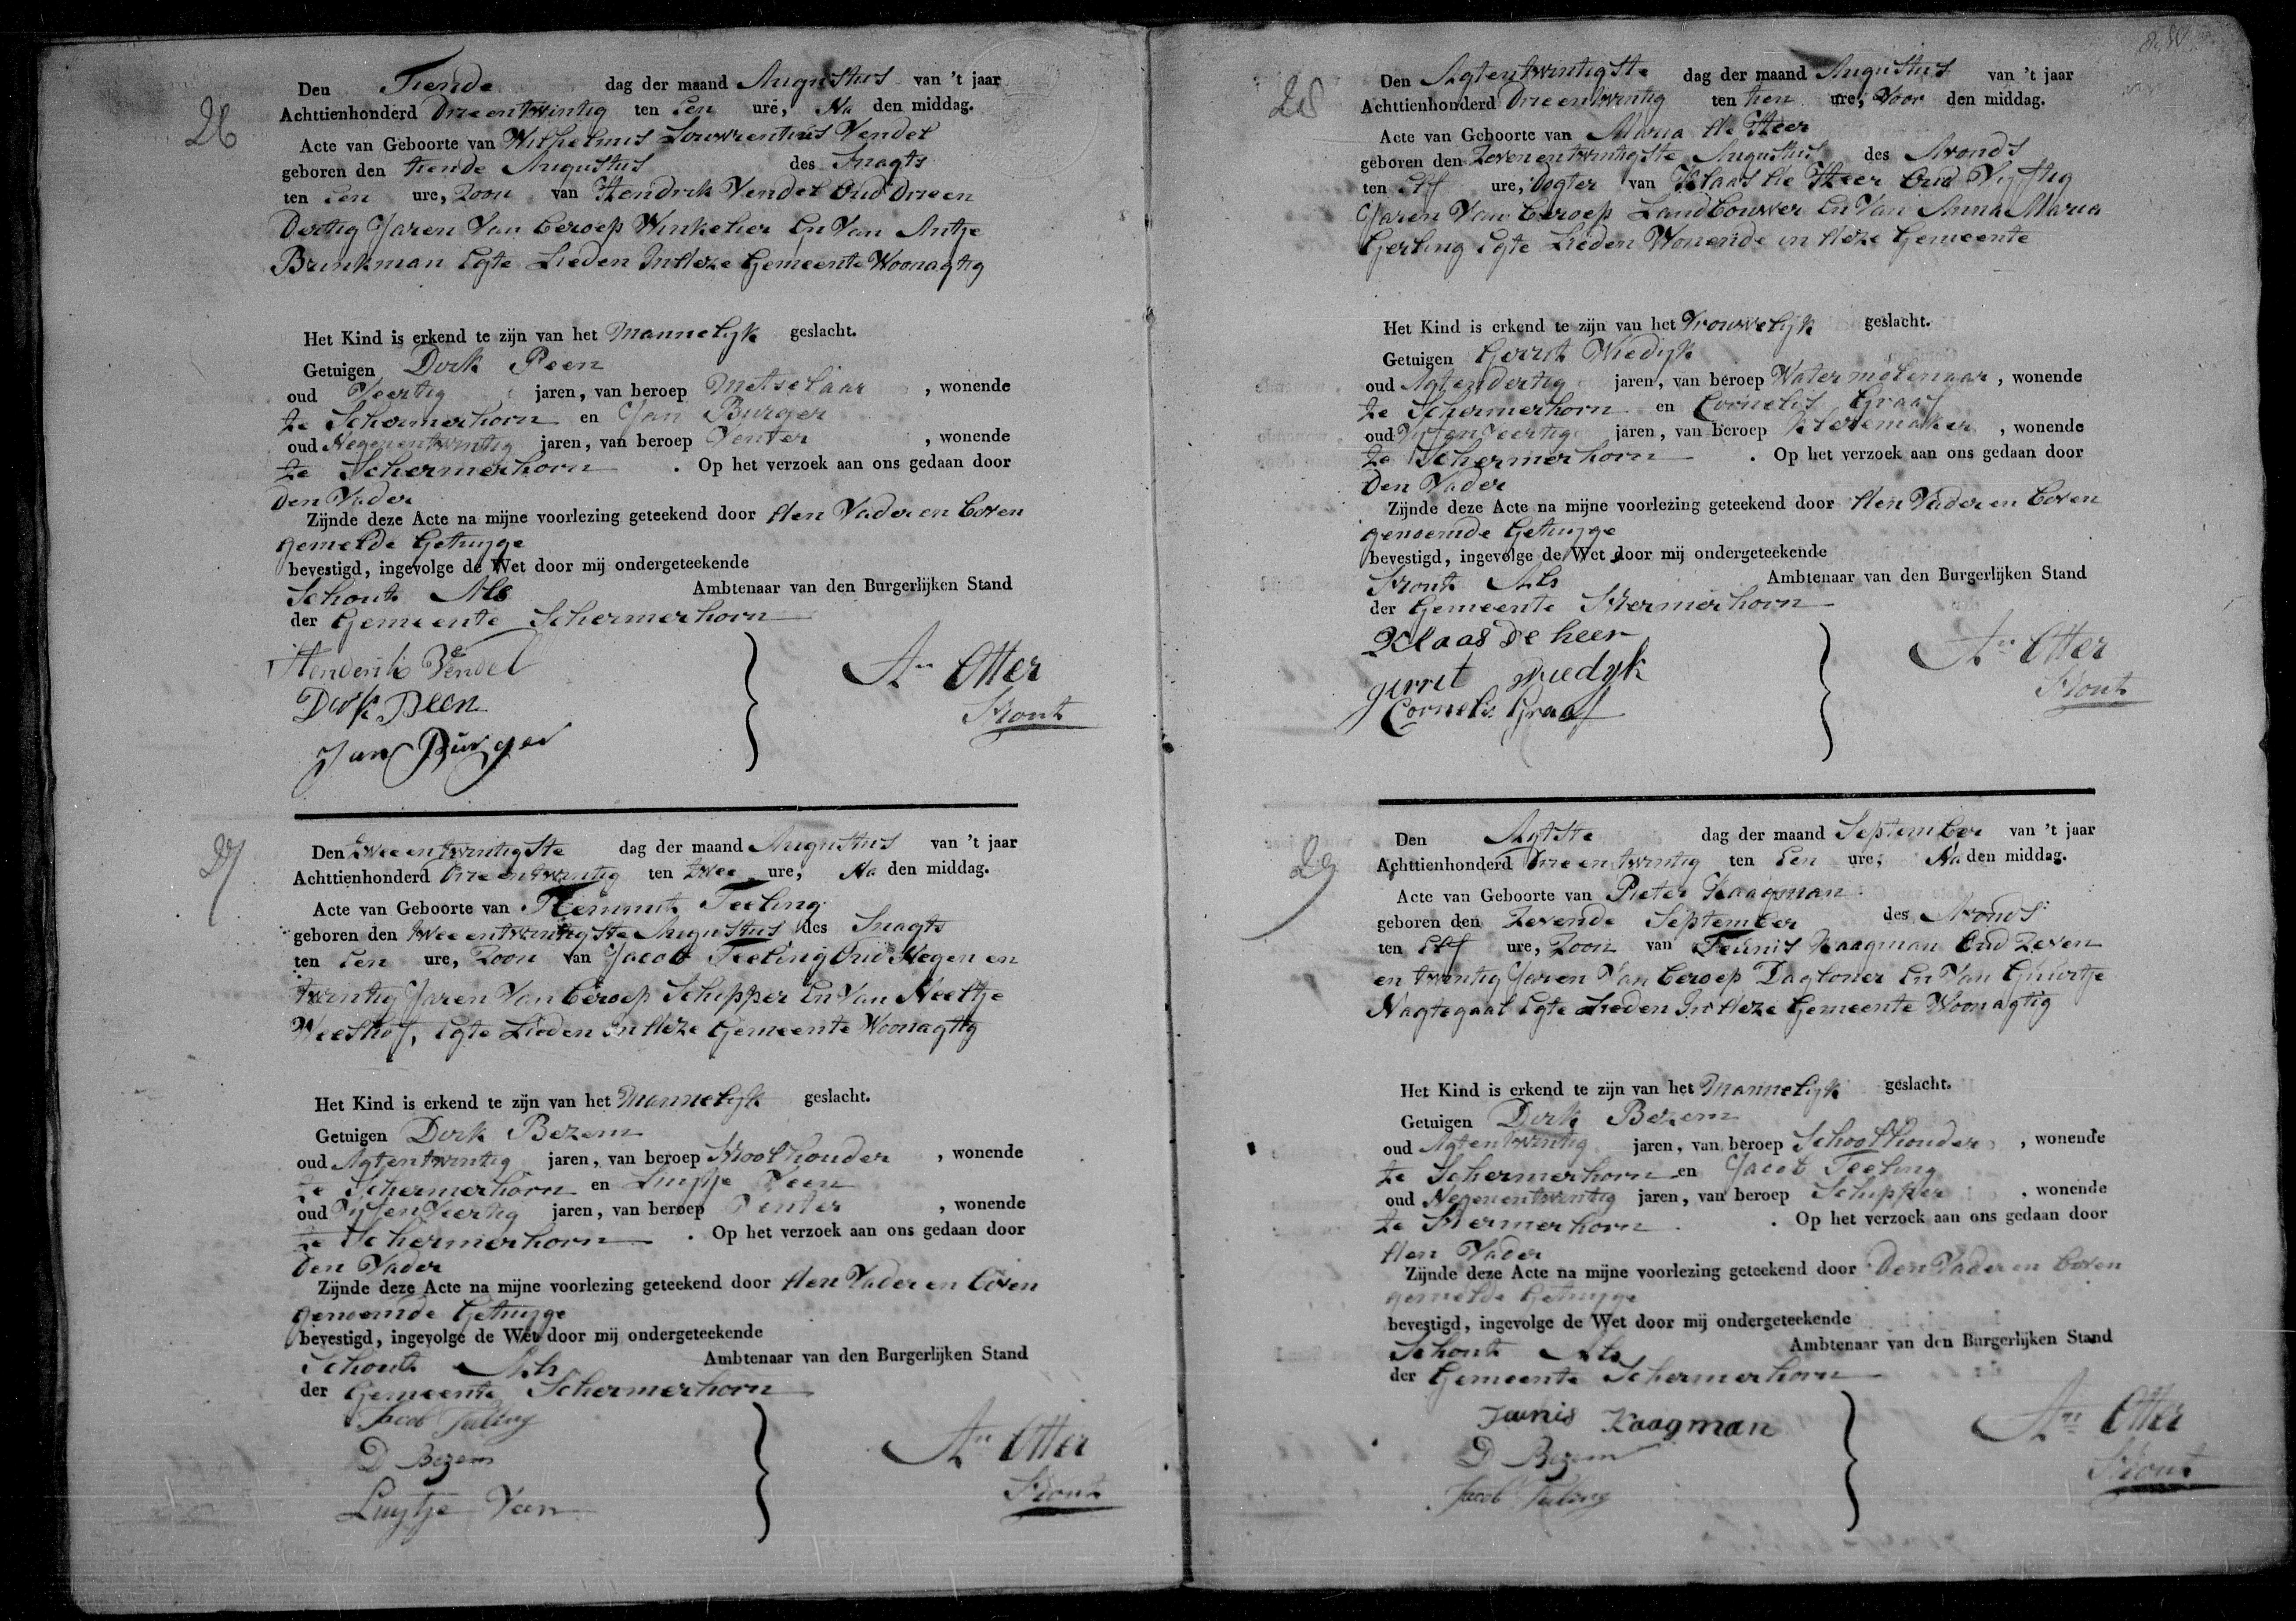 26
Den Tiende dag der maand Augustus van 't jaar
Achttienhonderd Drieentwintig ten Een ure, Na den middag.
Acte van Geboorte van Wilhelmus Louwrentius Vendel
geboren den tiende Augustus des Snagts
ten Een ure, Zoon van Hendrik Vendel Oud Drie en
Dertig Jaren Van beroep Winkelier En Van Antje
Brinkman Egte Lieden In deze Gemeente Woonagtig
Het Kind is erkend te zijn van het Mannelyk geslacht.
Getuigen Dirk Peen
oud Veertig jaren, van beroep Metselaar, wonende
te Schermerhorn en Jan Burger
oud Negenentwintig jaren, van beroep Venter, wonende
te Schermerhorn. Op het verzoek aan ons gedaan door
Den Vader
Zijnde deze Acte na mijne voorlezing geteekend door den Vader en boven
gemelde Getuyge
bevestigd, ingevolge de Wet door mij ondergeteekende
Schout Als Ambtenaar van den Burgerlijken Stand
der Gemeente Schermerhorn
Henderik Vendel
Dirk Peen
Jan Burger
An Otter
Schout
27
Den Tweeentwintigste dag der maand Augustus van 't jaar
Achttienhonderd Drieentwintig ten twee ure, Na den middag.
Acte van Geboorte van Remmit Teeling
geboren den tweeentwintigste Augustus des Snagts
ten Een ure, Zoon van Jacob Teeling Oud Negen en
twintig Jaren Van beroep Schipper En Van Neeltje
Weeshof, Egte Lieden in deze Gemeente Woonagtig
Het Kind is erkend te zijn van het Mannelyk geslacht.
Getuigen Dirk Bezem
oud Agtentwintig jaren, van beroep Schoolhouder, wonende
te Schermerhorn en Luytje Veen
oud Vyfenveertig jaren, van beroep Venter, wonende
te Schermerhorn. Op het verzoek aan ons gedaan door
Den Vader
Zijnde deze Acte na mijne voorlezing geteekend door den Vader en boven
genoemde Getuyge
bevestigd, ingevolge de Wet door mij ondergeteekende
Schout Als Ambtenaar van den Burgerlijken Stand
der Gemeente Schermerhorn
Jacob Teeling
D Bezem
Luytje Veen
An Otter
Schout
28
Den Agtentwintigste dag der maand Augustus van 't jaar
Achttienhonderd Drieentwintig ten tien ure, Voor den middag.
Acte van Geboorte van Maria de Heer
geboren den Zevenentwintigste Augustus des Avonds
ten Elf ure, Dogter van Klaas de Heer Oud Vyftig
Jaren Van beroep Landbouwer En Van Anna Maria
Gerling Egte Lieden Wonende in deze Gemeente
Het Kind is erkend te zijn van het Vrouwelijk geslacht.
Getuigen Gerrit Wiedijk
oud Agtendertig jaren, van beroep Watermolenaar, wonende
te Schermerhorn en Cornelis Graaf
oud Vyfenveertig jaren, van beroep Kleremaker, wonende
te Schermerhorn. Op het verzoek aan ons gedaan door
Den Vader
Zijnde deze Acte na mijne voorlezing geteekend door den Vader en boven
genoemde Getuyge
bevestigd, ingevolge de Wet door mij ondergeteekende
Schout Als Ambtenaar van den Burgerlijken Stand
der Gemeente Schermerhorn
Klaas de heer
gerrit wiedyk
Cornelis Graaf
An Otter
Schout
29
Den Agtste dag der maand September van 't jaar
Achttienhonderd Drieentwintig ten Een ure, Na den middag.
Acte van Geboorte van Pieter Kaagman
geboren den Zevende September des Avonds
ten Elf ure, Zoon van Teunis Kaagman Oud Zeven
en twintig Jaren Van beroep Dagloner En Van Guurtje
Nagtegaal Egte Lieden In deze Gemeente Woonagtig
Het Kind is erkend te zijn van het Mannelijk geslacht.
Getuigen Dirk Bezem
oud Agtentwintig jaren, van beroep Schoolhouder, wonende
te Schermerhorn en Jacob Teeling
oud Negenentwintig jaren, van beroep Schipper, wonende
te Schermerhorn. Op het verzoek aan ons gedaan door
den Vader
Zijnde deze Acte na mijne voorlezing geteekend door Den Vader en boven
gemelde Getuyge
bevestigd, ingevolge de Wet door mij ondergeteekende
Schout Als Ambtenaar van den Burgerlijken Stand
der Gemeente Schermerhorn
Teunis Kaagman
D Bezem
Jacob Teeling
An Otter
Schout